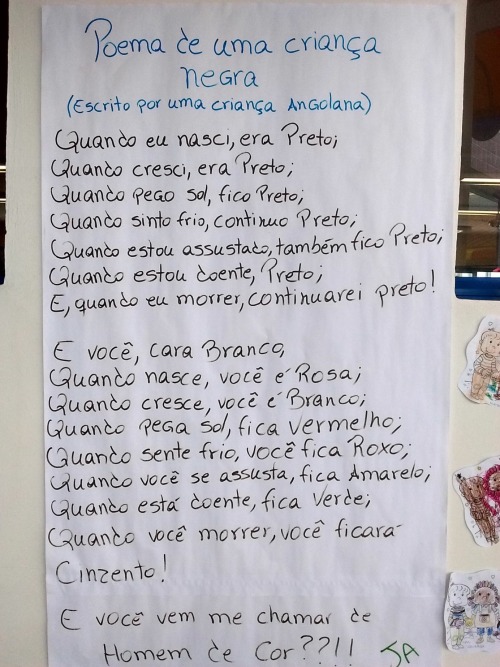 Poema de uma criança
negra
(Escrito por uma criança Angolana)
Quando eu nasci, era Preto;
Quando cresci, era Preto;
Quando pego sol, fico Preto;
Quando sinto frio, continuo Preto;
Quando estou assustado, também fico Preto;
Quando estou doente, Preto;
E, quando eu morrer, continuarei preto!
E você, cara Branco,
Quando nasce, você é Rosa;
Quando cresce, você é Branco;
Quando pega sol, fica vermelho;
Quando sente frio, você fica Roxo;
Quando você se assusta, fica Amarelo;
Quando está doente, fica Verde;
Quando você morrer, você ficará
Cinzento!
E você vem me chamar de
Homem de Cor??!!